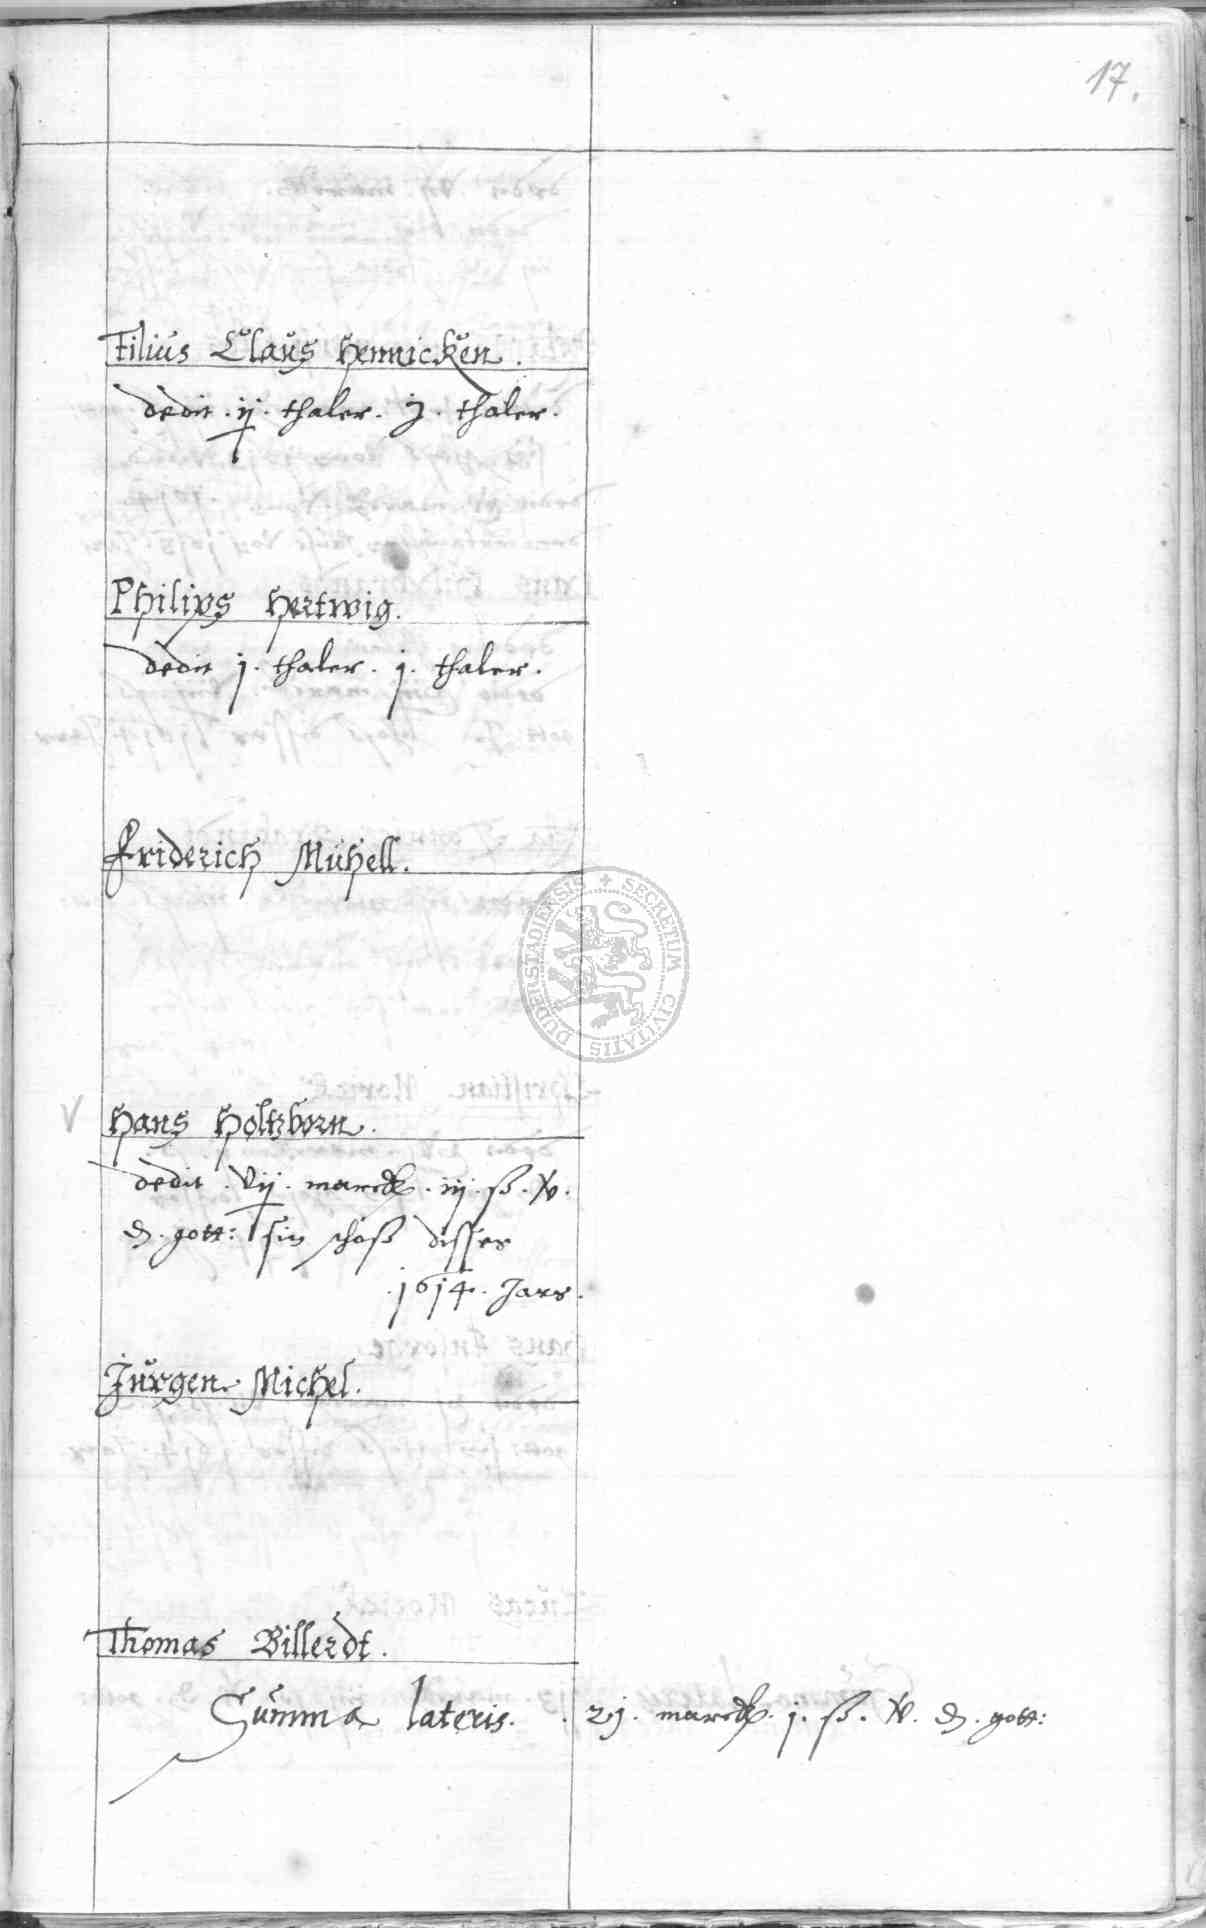 17.
Filius Claus Hennicken.
dedit . ij . thaler . j . thaler .
Philips Hertwig.
dedit j . thaler . j . thaler .
Friderich Mühell.
V Hans Holtzborn.
dedit . vij . marck . iij . ß . iv .
d . gott: sin schoß disser
. 1614 . Jars .
Jürgen Michel.
Thomas Billerdt.
Summa lateris . . 21 . marck . j . ß . iv . d . gott:
SECRETUM CIVITATIS DUDERSTADIENSIS